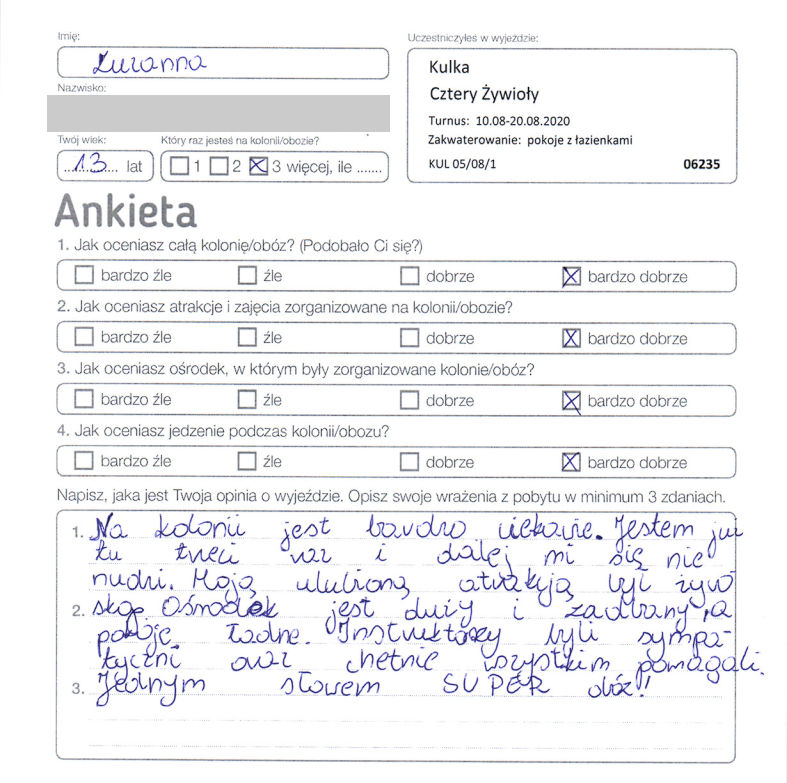 Imię:
Zuzanna
Nazwisko:
Twój wiek:
13 lat
Który raz jesteś na kolonii/obozie?
1 2 3 więcej, ile .......
Uczestniczyłeś w wyjeździe:
Kulka
Cztery Żywioły
Turnus: 10.08-20.08.2020
Zakwaterowanie: pokoje z łazienkami
KUL 05/08/1 06235
Ankieta
1. Jak oceniasz całą kolonię/obóz? (Podobało Ci się?)
bardzo źle źle dobrze bardzo dobrze
2. Jak oceniasz atrakcje i zajęcia zorganizowane na kolonii/obozie?
bardzo źle źle dobrze bardzo dobrze
3. Jak oceniasz ośrodek, w którym były zorganizowane kolonie/obóz?
bardzo źle źle dobrze bardzo dobrze
4. Jak oceniasz jedzenie podczas kolonii/obozu?
bardzo źle źle dobrze bardzo dobrze
Napisz, jaka jest Twoja opinia o wyjeździe. Opisz swoje wrażenia z pobytu w minimum 3 zdaniach.
1. Na kolonii jest bardzo ciekawie. Jestem już
tu trzeci raz i dalej mi się nie
nudzi. Moją ulubioną atrakcją był
2. Ośrodek jest duży i zadbany, a
pokoje ładne. Instruktorzy byli sympa-
tyczni oraz chętnie wszystkim pomagali.
3. Jednym słowem SUPER obóz!